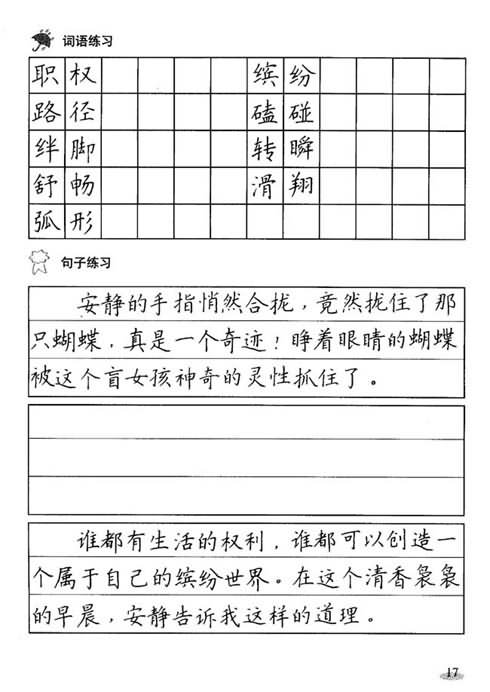 词语练习
职权 缤纷
路径 磕碰
绊脚 转瞬
舒畅 滑翔
弧形
句子练习
安静的手指悄然合拢，竟然拢住了那
只蝴蝶，真是一个奇迹！睁着眼睛的蝴蝶
被这个盲女孩神奇的灵性抓住了。
谁都有生活的权利，谁都可以创造一
个属于自己的缤纷世界。在这个清香袅袅
的早晨，安静告诉我这样的道理。
17